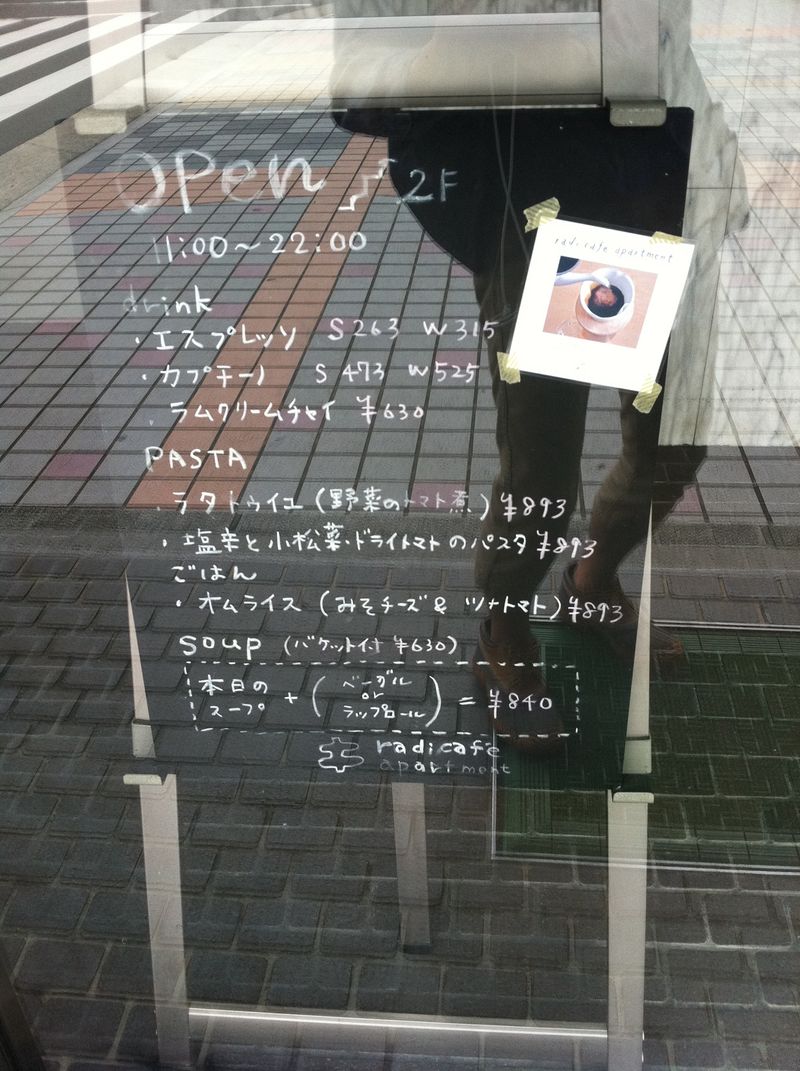 OPEN 2F
11:00～22:00
radi cafe apartment
drink
・エスプレッソ S263 W315
・カプチーノ S473 W525
・ラムクリームチャイ ¥630
PASTA
・ラタトゥイユ (野菜のトマト煮) ¥893
・塩辛と小松菜・ドライトマトのパスタ ¥893
ごはん
・オムライス (みそチーズ & ツナトマト) ¥893
SOUP (バケット付 ¥630)
本日のスープ + (ベーグル or ラップロール) = ¥840
radicafe
apartment